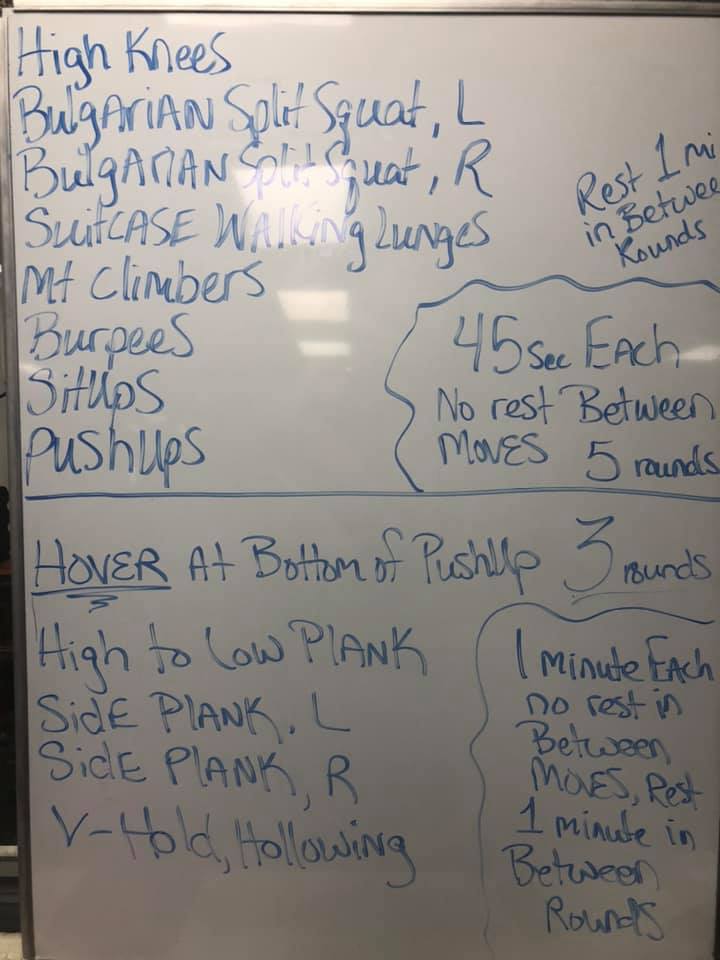 High Knees
BulgAriAN Split Squat, L
BulgAriAN Split Squat, R
SuitCASE WAlking Lunges
Mt Climbers
Burpees
SitUps
PushUps
Rest 1 mi
in Betwee
Rounds
45 sec EAch
No rest Between
MOVES 5 rounds
HOVER At Bottom of PushUp 3 rounds
High to Low PLANK
SidE PLANK, L
SidE PLANK, R
V-Hold, Hollowing
1 minute EAch
no rest in
Between
MOVES, Rest
1 minute in
Between
Rounds